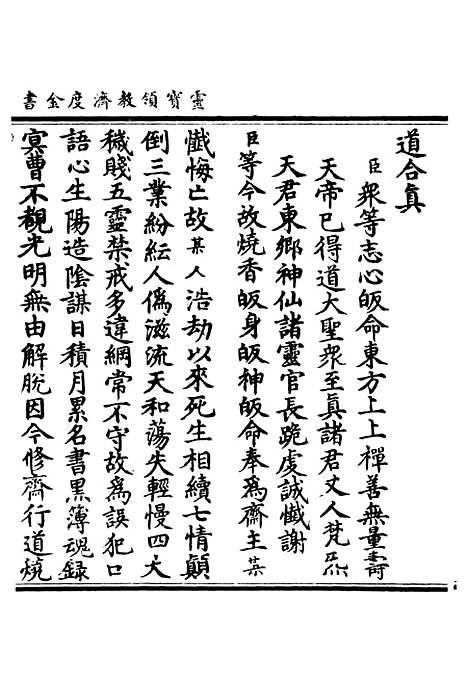 靈寶領教濟度金書
道合真
臣衆等志心皈命東方上上禪善無量壽
天帝已得道大聖衆至真諸君丈人梵炁
天君東鄉神仙諸靈官長跪虔誠懺謝
臣等今故燒香皈身皈神皈命奉爲齋主某
懺悔亡故某人浩劫以來死生相續七情顛
倒三業紛紜人僞滋流天和蕩失輕慢四大
穢賤五靈禁戒多違綱常不守故爲誤犯口
語心生陽造陰謀日積月累名書黑簿魂録
冥曹不覩光明無由解脫因今修齋行道燒